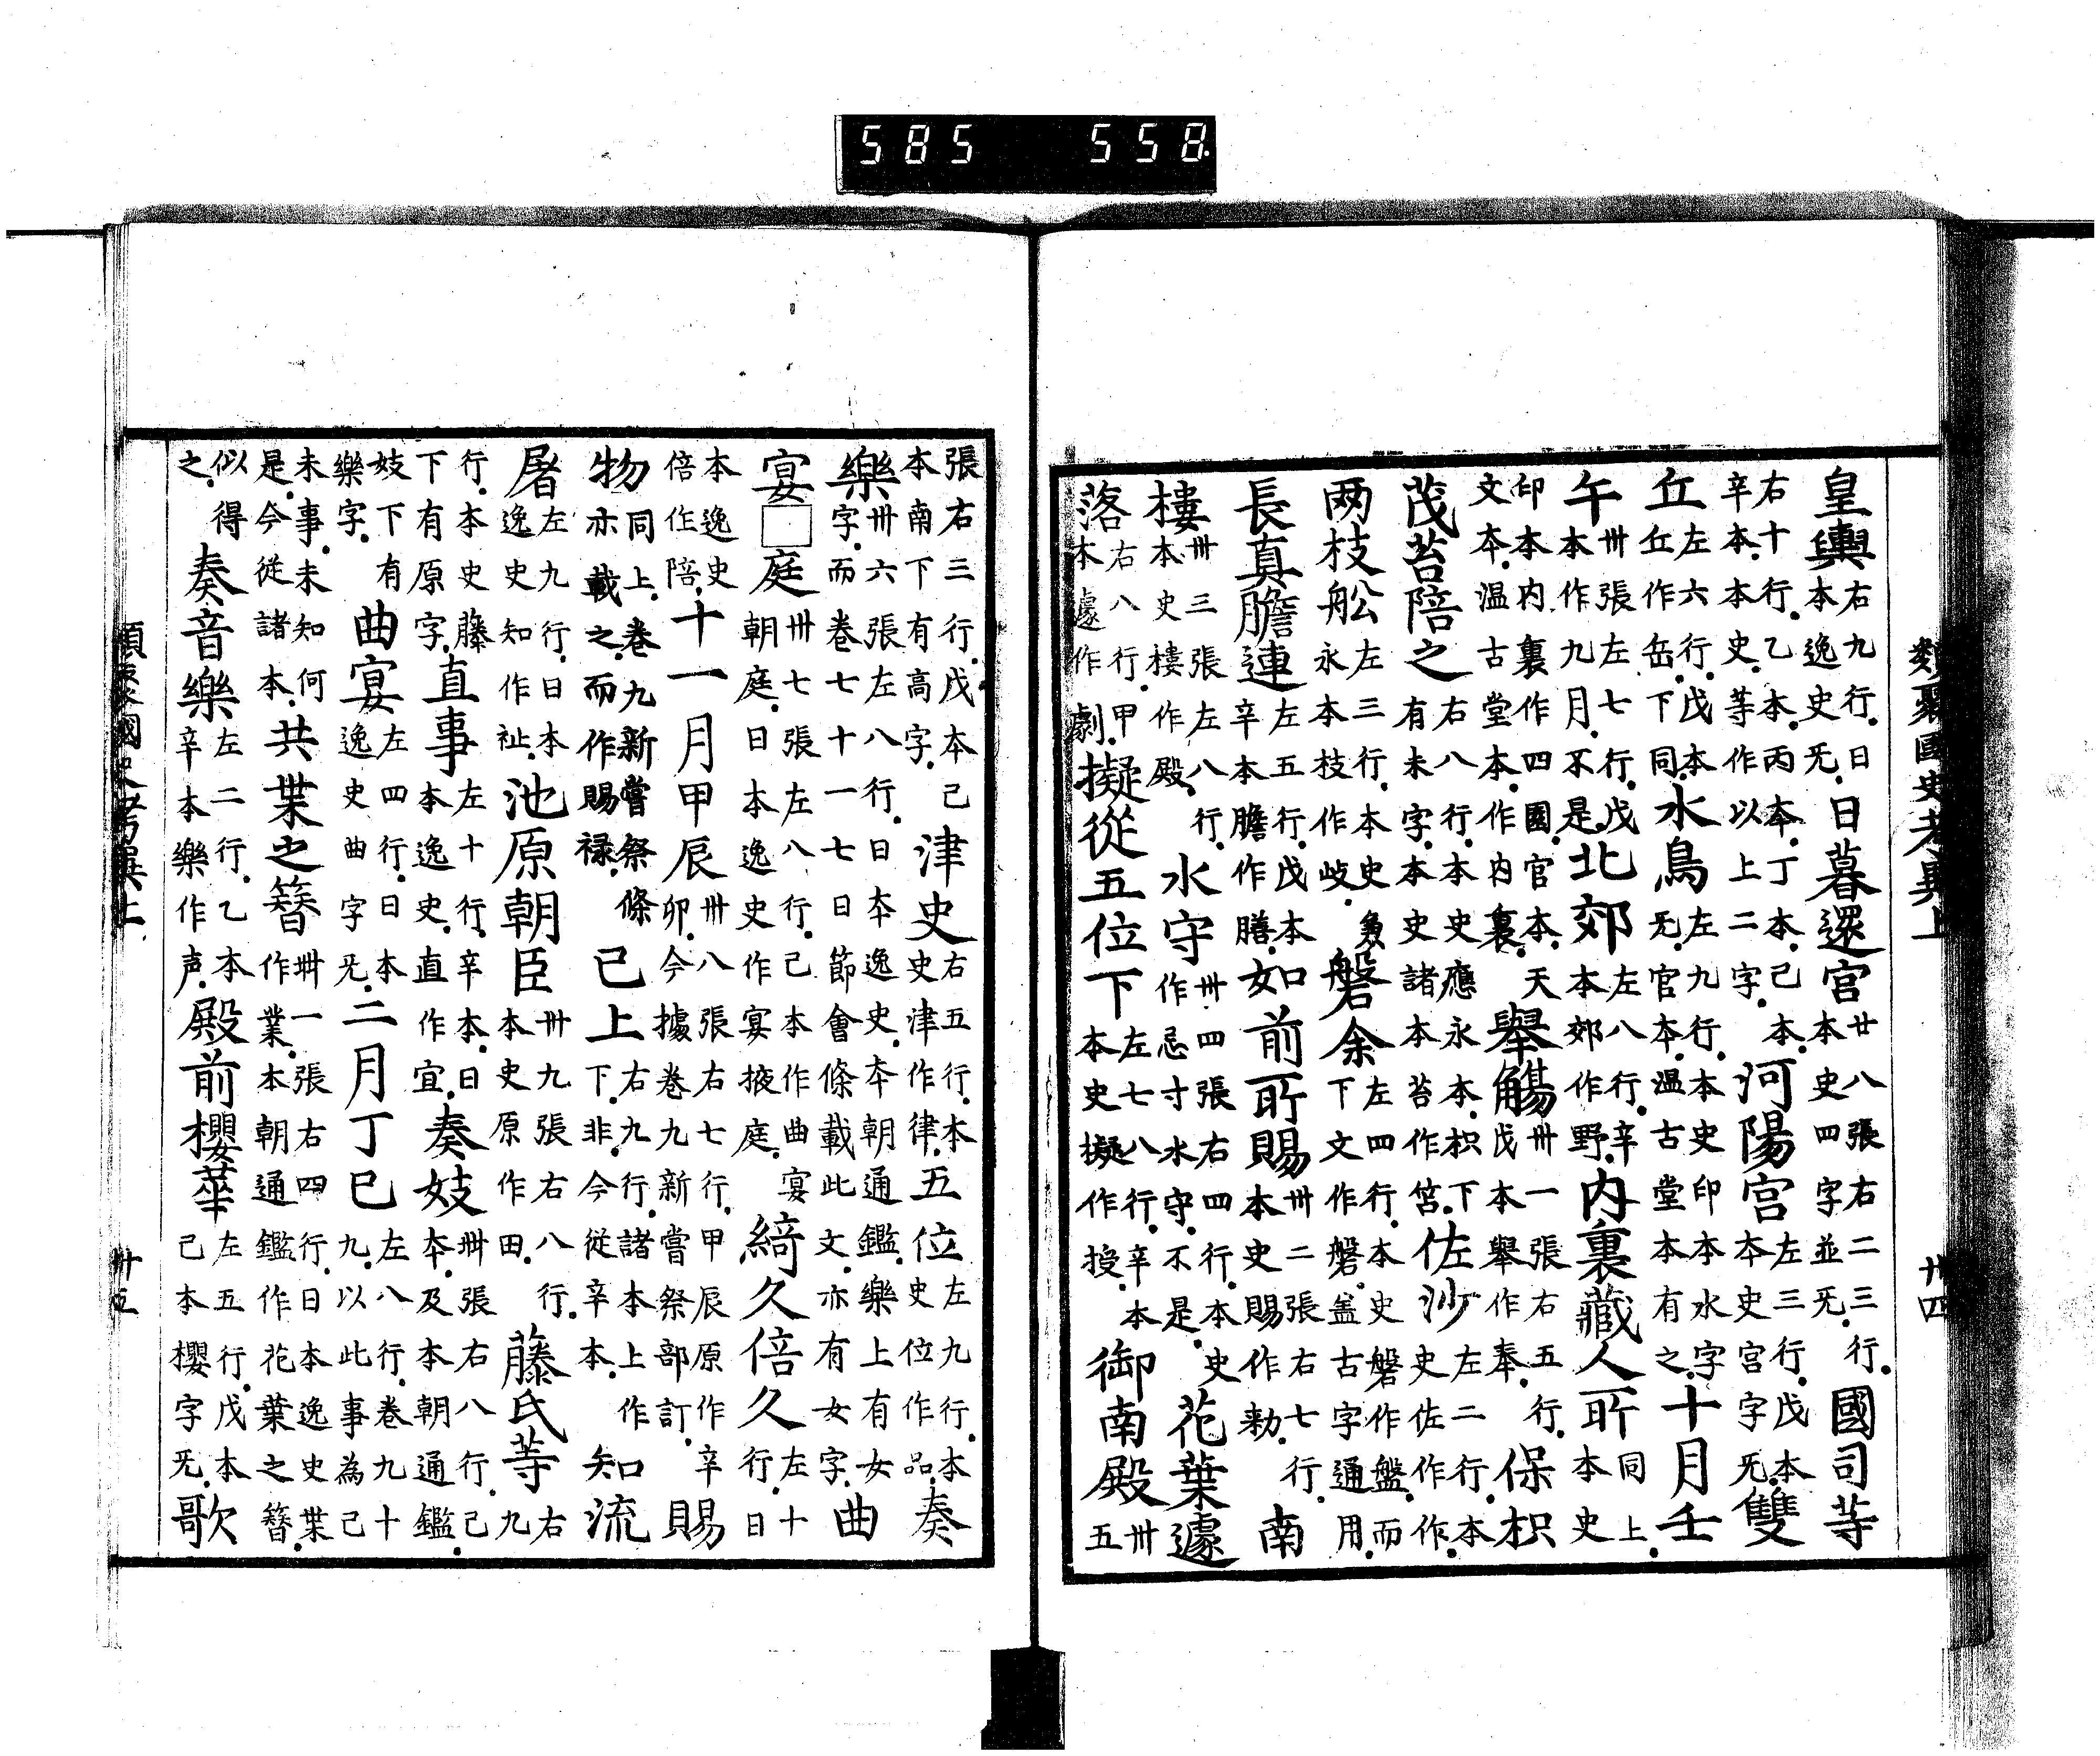 585 558.
類聚國史考異上 卅四
皇輿右九行日本逸史无日暮還宮廿八張右二三行本史四字並无國司等
右十行乙本丙本丁本己本辛本本史等作以上二字河陽宮左三行戊本本史宮字无雙
丘左六行戊本丘作岳下同水鳥左九行本史印本水字无官本温古堂本有之十月壬
午卅張左七行戊本作九月不是北郊左八行辛本郊作野内裏藏人所同上本史
印本内裏作四園官本天文本温古堂本作内裏舉觴卅一張右五行戊本舉作奉保枳
茂苔陪之右八行本史應永本枳下有未字本史諸本苔作笞佐沙左二行本史佐作作
两枝舩左三行本史多永本枝作岐磐余左四行本史磐作盤而下文作磐盖古字通用
長真膽連左五行戊本辛本膽作膳如前所賜卅二張右七行本史賜作勅南
樓卅三張左八行本史樓作殿水守卅四張右四行本史作忌寸水守不是花葉遽
落右八行甲本遽作劇擬從五位下左七八行辛本本史擬作授御南殿卅五
張右三行戊本己本南下有高字津史右五行本史津作律五位左九行本史位作品奏
樂卅六張左八行日本逸史本朝通鑑樂上有女字而卷七十一七日節會條載此文亦有女字曲
宴□庭卅七張左八行己本作曲宴朝庭日本逸史作宴掖庭綺久倍久左十行日
本逸史倍作陪十一月甲辰卅八張右七行甲辰原作辛卯今據卷九新嘗祭部訂賜
物同上卷九新嘗祭條亦載之而作賜禄己上右九行諸本上作下非今從辛本知流
屠左九行日本逸史知作祉池原朝臣卅九張右八行本史原作田藤氏等右九
行本史藤下有原字直事左十行辛本日本逸史直作宜奏妓卌張右八行己本及本朝通鑑
妓下有樂字曲宴左四行日本逸史曲字无二月丁巳左八行卷九十九以此事為己
未事未知何是今從諸本共業之簪卌一張右四行日本逸史業作業本朝通鑑作花葉之簪
似得之奏音樂左二行乙本辛本樂作声殿前櫻華左五行戊本己本櫻字无歌
類聚國史考異上 卅五